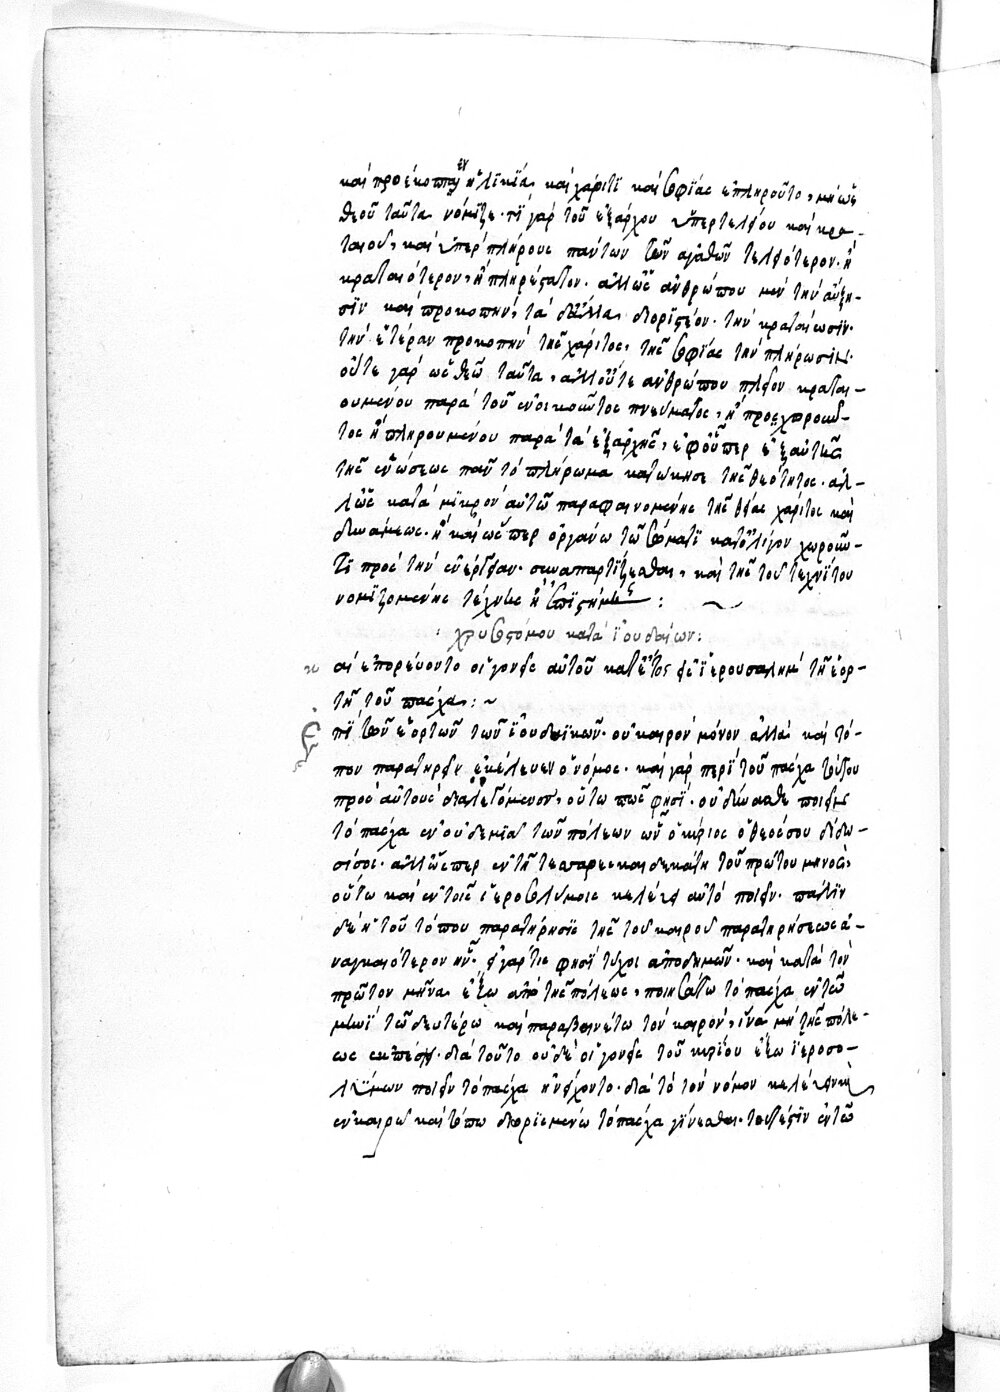 καὶ προέκοπτεν ἡλικίᾳ καὶ χάριτι καὶ σοφίας ἐπληροῦτο, μὴ ὡς
θεοῦ ταῦτα νόμιζε· τί γὰρ τοῦ ἐξάρχου ὑπερτελείου καὶ κρα-
ταιοῦ, καὶ ὑπερπλήρους πάντων τῶν ἀγαθῶν τελειότερον· ἢ
κραταιότερον, ἢ πληρέστατον· ἀλλ' ὡς ἀνθρώπου μὲν τὴν αὔξη-
σιν καὶ προκοπὴν, τὰ διοριστέον· τὴν κραταίωσιν·
τὴν ἑτέραν προκοπὴν τῆς χάριτος, τῆς σοφίας τὴν πλήρωσιν·
οὔτε γὰρ ὡς θεῶ ταῦτα, ἀλλ' οὔτε ἀνθρώπου πλεῖον κραται-
ουμένου παρὰ τοῦ ἐνοικοῦντος πνεύματος, ἢ προσχωροῦν-
τος ἢ πληρουμένου παρὰ τὰ ἐξαρχῆς, ἐφ' οὗπερ ἐξ αὐτῆς
τῆς ἑνώσεως πᾶν τὸ πλήρωμα κατώκησε τῆς θεότητος· ἀλ-
λ' ὡς κατὰ μικρὸν αὐτῶ παραφαινομένης τῆς θείας χάριτος καὶ
δυνάμεως· ἢ καὶ ὥσπερ ὀργάνω τῶ σώματι κατ' ὀλίγον χωροῦν-
τι πρὸς τὴν ἐνέργειαν· συναπαρτίζεσθαι, καὶ τῆς τοῦ τεχνίτου
νομιζομένης τέχνης ἢ ἐπιστήμης :
χρυσοστόμου κατὰ ἰουδαίων:
κ αὶ ἐπορεύοντο οἱ γονεῖς αὐτοῦ κατ' ἔτος εἰς ἱερουσαλὴμ τῆ ἑορ-
τῆ τοῦ πάσχα : ~
Ἐ πὶ τῶν ἑορτῶν τῶν ἰουδαϊκῶν· οὐ καιρὸν μόνον ἀλλὰ καὶ τό-
πον παρατηρεῖν ἐκέλευεν ὁ νόμος· καὶ γὰρ περὶ τοῦ πάσχα τούτου
πρὸς αὐτοὺς διαλεγόμενον, οὕτω πως φησί· οὐ δύνασθε ποιεῖν
τὸ πάσχα ἐν οὐδεμιᾶ τῶν πόλεων ὧν ὁ κύριος ὁ θεός σου δίδω-
σί σοι· ἀλλ' ὥσπερ ἐν τῆ τεσσαρεσκαιδεκάτη τοῦ πρώτου μηνὸς,
οὕτω καὶ ἐν τοῖς ἱεροσολύμοις κελεύει αὐτὸ ποιεῖν· πάλιν
δὲ ἡ τοῦ τόπου παρατήρησις τῆς τοῦ καιροῦ παρατηρήσεως ἀ-
ναγκαιότερον ἦν· εἰ γάρ τις φησὶ τύχοι ἀποδημῶν· καὶ κατὰ τὸν
πρῶτον μῆνα ἔξω ἀπὸ τῆς πόλεως, ποιησάτω τὸ πάσχα ἐν τῶ
μηνὶ τῶ δευτέρω καὶ παραβαινέτω τὸν καιρὸν, ἵνα μὴ τῆς πόλε-
ως ἐκπέση· διὰ τοῦτο οὐδὲ οἱ γονεῖς τοῦ κυρίου ἔξω ἱεροσο-
λύμων ποιεῖν τὸ πάσχα ἠνείχοντο· διὰ τὸ τὸν νόμον κελεύειν
ἐν καιρῶ καὶ τόπω διορισμένω τὸ πάσχα γίνεσθαι· τουτέστιν ἐν τῶ